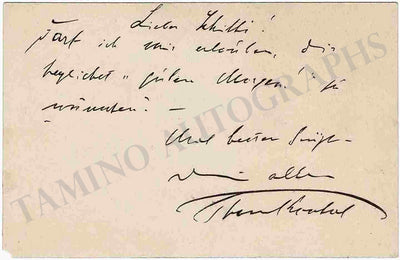 Lieber Schikki!
Darf ich mir erlauben, dir
herzlichst "guten Morgen!" zu
wünschen? —
Und besten
Dein alter
TAMINO AUTOGRAPHS